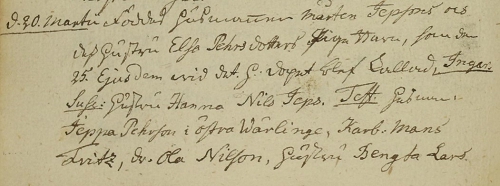 d. 20. Martii föddes Husmannen Mårten Jeppes och
dess Hustru Elsa Pehrs dotters Piga Barn, som den
25 Ejusdem vid det H: dopet blef kallad, Ingar.
Susc: Hustru Hanna Nils Jeps. Test: Husm:
Jeppa Pehrson i östra Wärlinge, Karb: Mans
Fritz, dr. Ola Nilson, Hustru Bengta Lars.